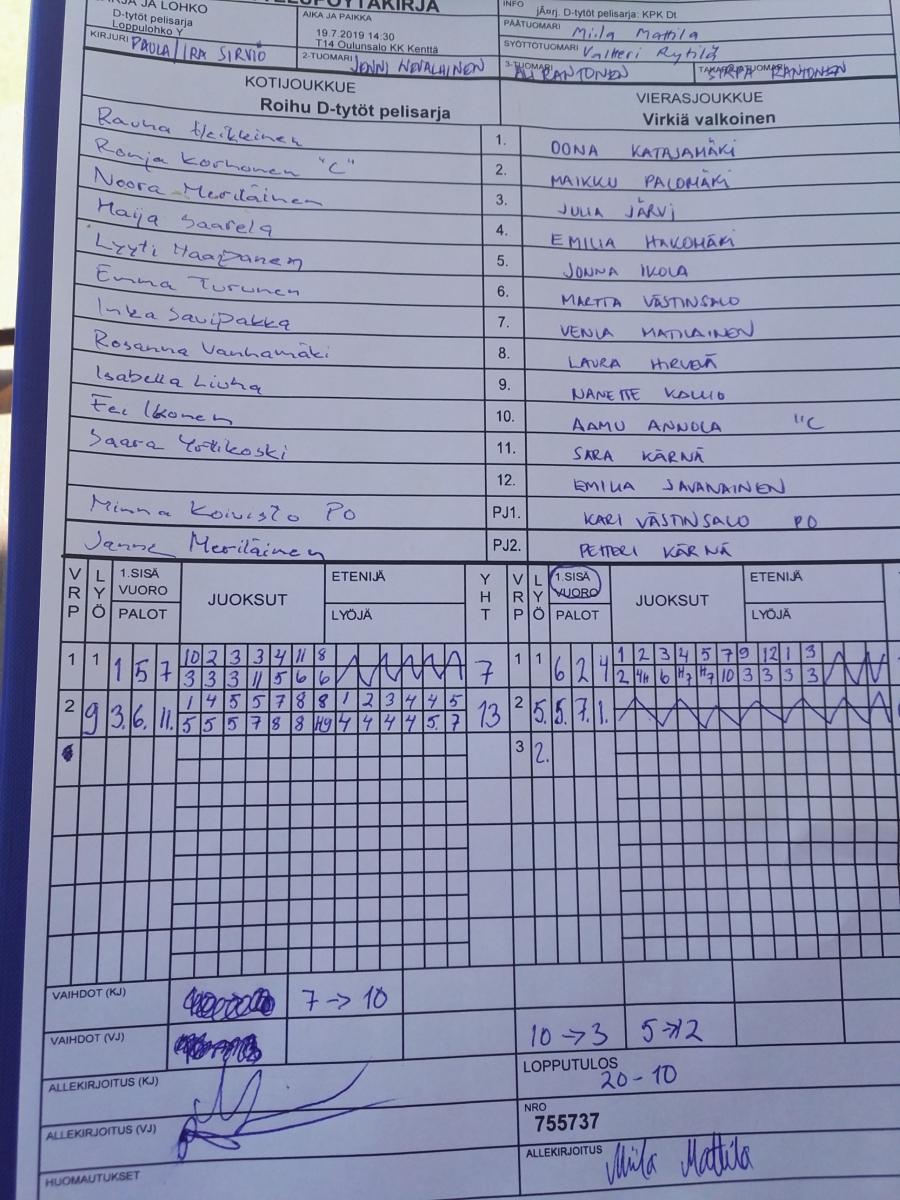 D-tytöt pelisarja
Loppulohko Y
KIRJURI PAULA / IRA SIRVIÖ
AIKA JA PAIKKA
19.7.2019 14:30
T14 Oulunsalo KK Kenttä
2-TUOMARI JENNI NEVALAINEN
INFO
jÃ¤rj. D-tytöt pelisarja: KPK Dt
PÄÄTUOMARI Miila Mattila
SYÖTTÖTUOMARI Valtteri Rytilä
3-TUOMARI RANTONEN
SIRPA RANTONEN
KOTIJOUKKUE
Roihu D-tytöt pelisarja
VIERASJOUKKUE
Virkiä valkoinen
Rauha Heikkinen 1. OONA KATAJAMÄKI
Ronja Korhonen "C" 2. MAIKKU PALOMÄKI
Noora Meriläinen 3. JULIA JÄRVI
Maija Saarela 4. EMILIA HAKOMÄKI
Lyyti Haapanen 5. JONNA IKOLA
Emma Turunen 6. MARTTA VÄSTINSALO
Inka Savipakka 7. VENLA MATILAINEN
Rosanna Vanhamäki 8. LAURA HIRVELÄ
Isabella Liuha 9. NANETTE KALLIO
Eei Ikonen 10. AAMU ANNOLA "C
Saara Yrttikoski 11. SARA KÄRNÄ
12. EMILIA SAVANAINEN
Minna Koivisto PO PJ1. KARI VÄSTINSALO PO
Janne Meriläinen PJ2. PETTERI KÄRNÄ
VRP LYÖ 1.SISÄ VUORO PALOT JUOKSUT ETENIJÄ LYÖJÄ YHT VRP LYÖ 1.SISÄ VUORO PALOT JUOKSUT ETENIJÄ LYÖJÄ
1 1 1 5 7 10 2 3 3 4 11 8 7 1 1 6 2 4 1 2 3 4 5 7 9 12 1 3
3 3 3 11 5 6 6 2 4H 6 H7 H7 10 3 3 3 3
2 9 3. 6. 11. 1 4 5 5 7 8 8 1 2 3 4 4 5 13 2 5. 5. 7. 1.
5 5 5 7 8 8 H9 4 4 4 4 5. 7
3 2.
VAIHDOT (KJ) 7 -> 10
VAIHDOT (VJ) 10 -> 3 5 -> 12
ALLEKIRJOITUS (KJ)
LOPPUTULOS
20 - 10
ALLEKIRJOITUS (VJ)
NRO
755737
HUOMAUTUKSET
ALLEKIRJOITUS Miila Mattila